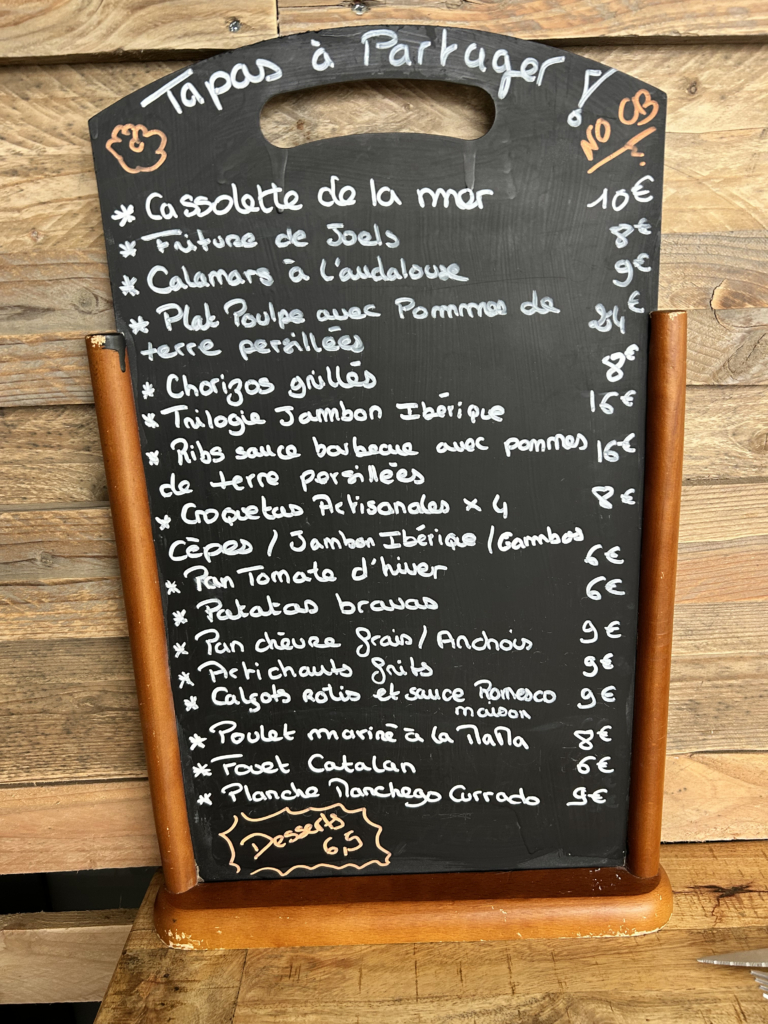 Tapas à Partager !
NO CB
* Cassolette de la mer 10€
* Friture de Joels 8€
* Calamars à l'andalouse 9€
* Plat Poulpe avec Pommes de 24€
terre persillées
* Chorizos grillés 8€
* Trilogie Jambon Ibérique 16€
* Ribs sauce barbecue avec pommes 16€
de terre persillées
* Croquetas Artisanales x 4 8€
Cèpes / Jambon Ibérique / Gambas
* Pan Tomate d'hiver 6€
* Patatas bravas 6€
* Pan chèvre frais / Anchois 9€
* Artichauts frits 9€
* Calçots rôtis et sauce Romesco 9€
maison
* Poulet mariné à la 8€
* Fouet Catalan 6€
* Planche Manchego Currado 9€
Desserts
6,5